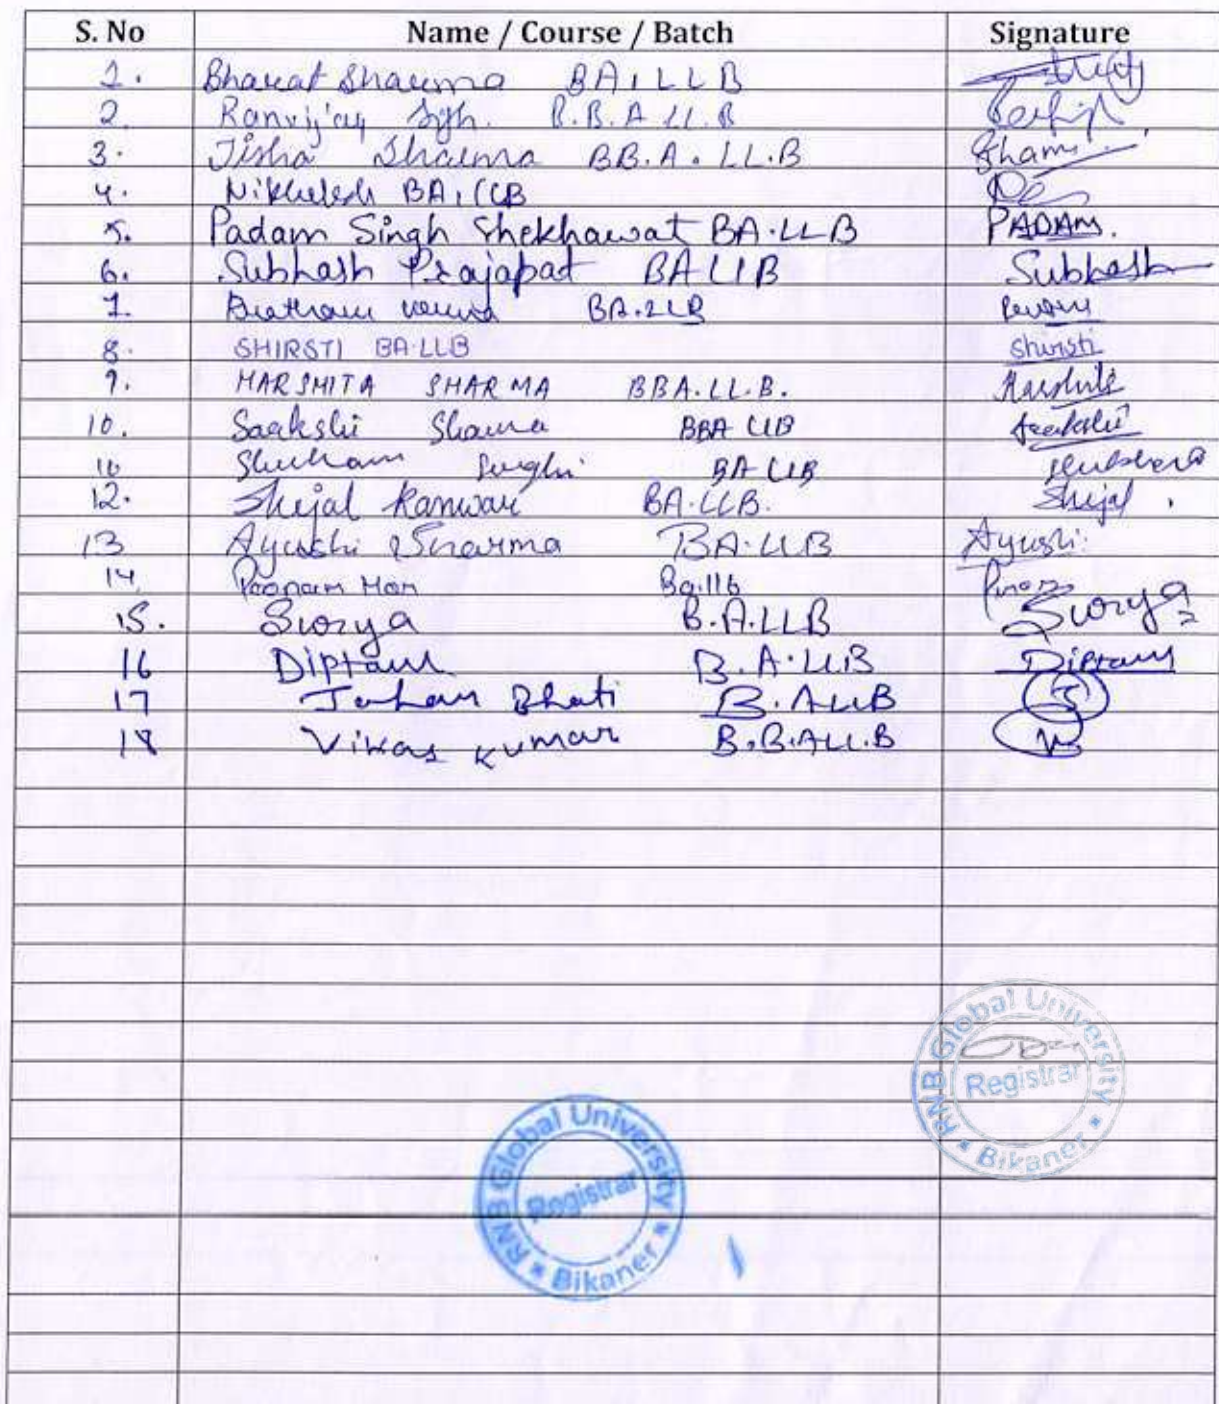 S. No Name / Course / Batch Signature
1. Bharat Sharma BA.LLB
2. Ranvijay Sgh. B.B.A LL.B
3. Tisha Sharma BB.A. LL.B Sham
4. Nikhilesh BA.LLB
5. Padam Singh Shekhawat BA.LLB PADAM.
6. Subhash Prajapat BA LLB Subhash
7. BA.LLB
8. SHIRSTI BA.LLB Shirsti
9. HARSHITA SHARMA BBA.LL.B. Harshita
10. Saakshi Sharma BBA LLB Saakshi
Shubham BA LLB Shubham
12. Shejal Kanwar BA.LLB. Shejal.
13 Ayushi Sharma BA.LLB Ayushi.
14. Poonam Ba.llb
15. Surya B.A.LLB Surya
16 Diptam B.A.LLB Diptam
17 Bhati B.A LLB
18 Vikas Kumar B.B.A LL.B
RNB Global University
Registrar
Bikaner
RNB Global University
Registrar
Bikaner